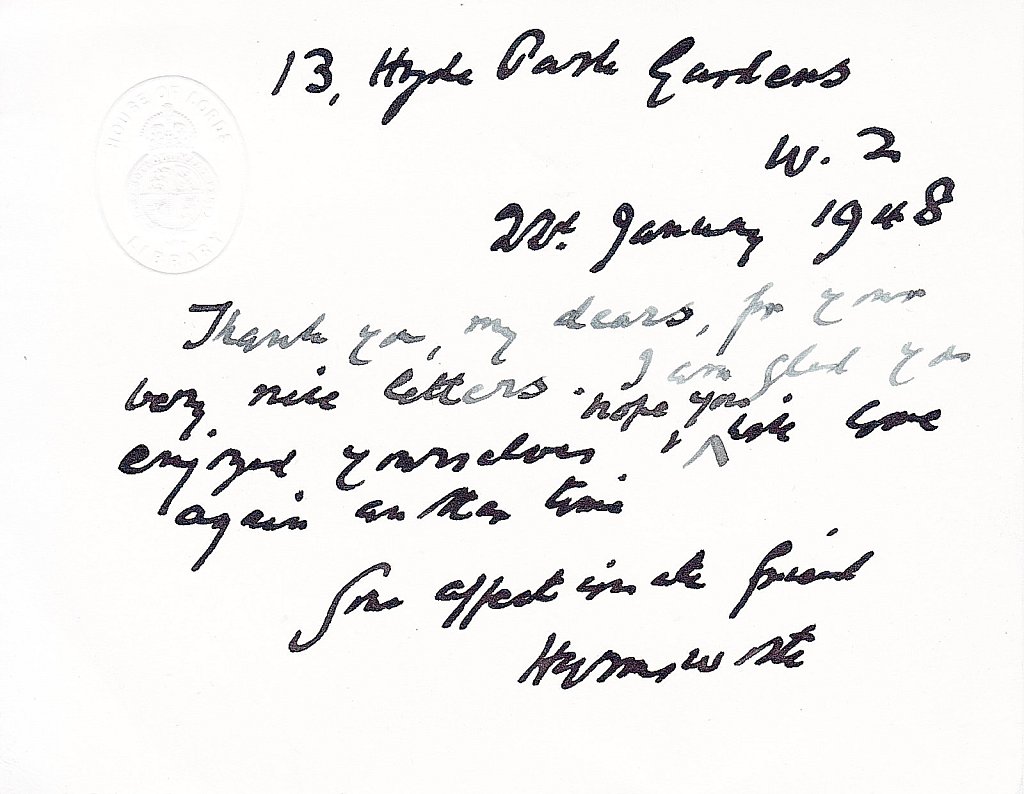 HOUSE OF LORDS
LIBRARY
13, Hyde Park Gardens
W. 2
22d. January 1948
Thank you, my dears, for your
very nice letters. I am glad you
hope you
enjoyed yourselves, & will come
again another time
Your affectionate friend